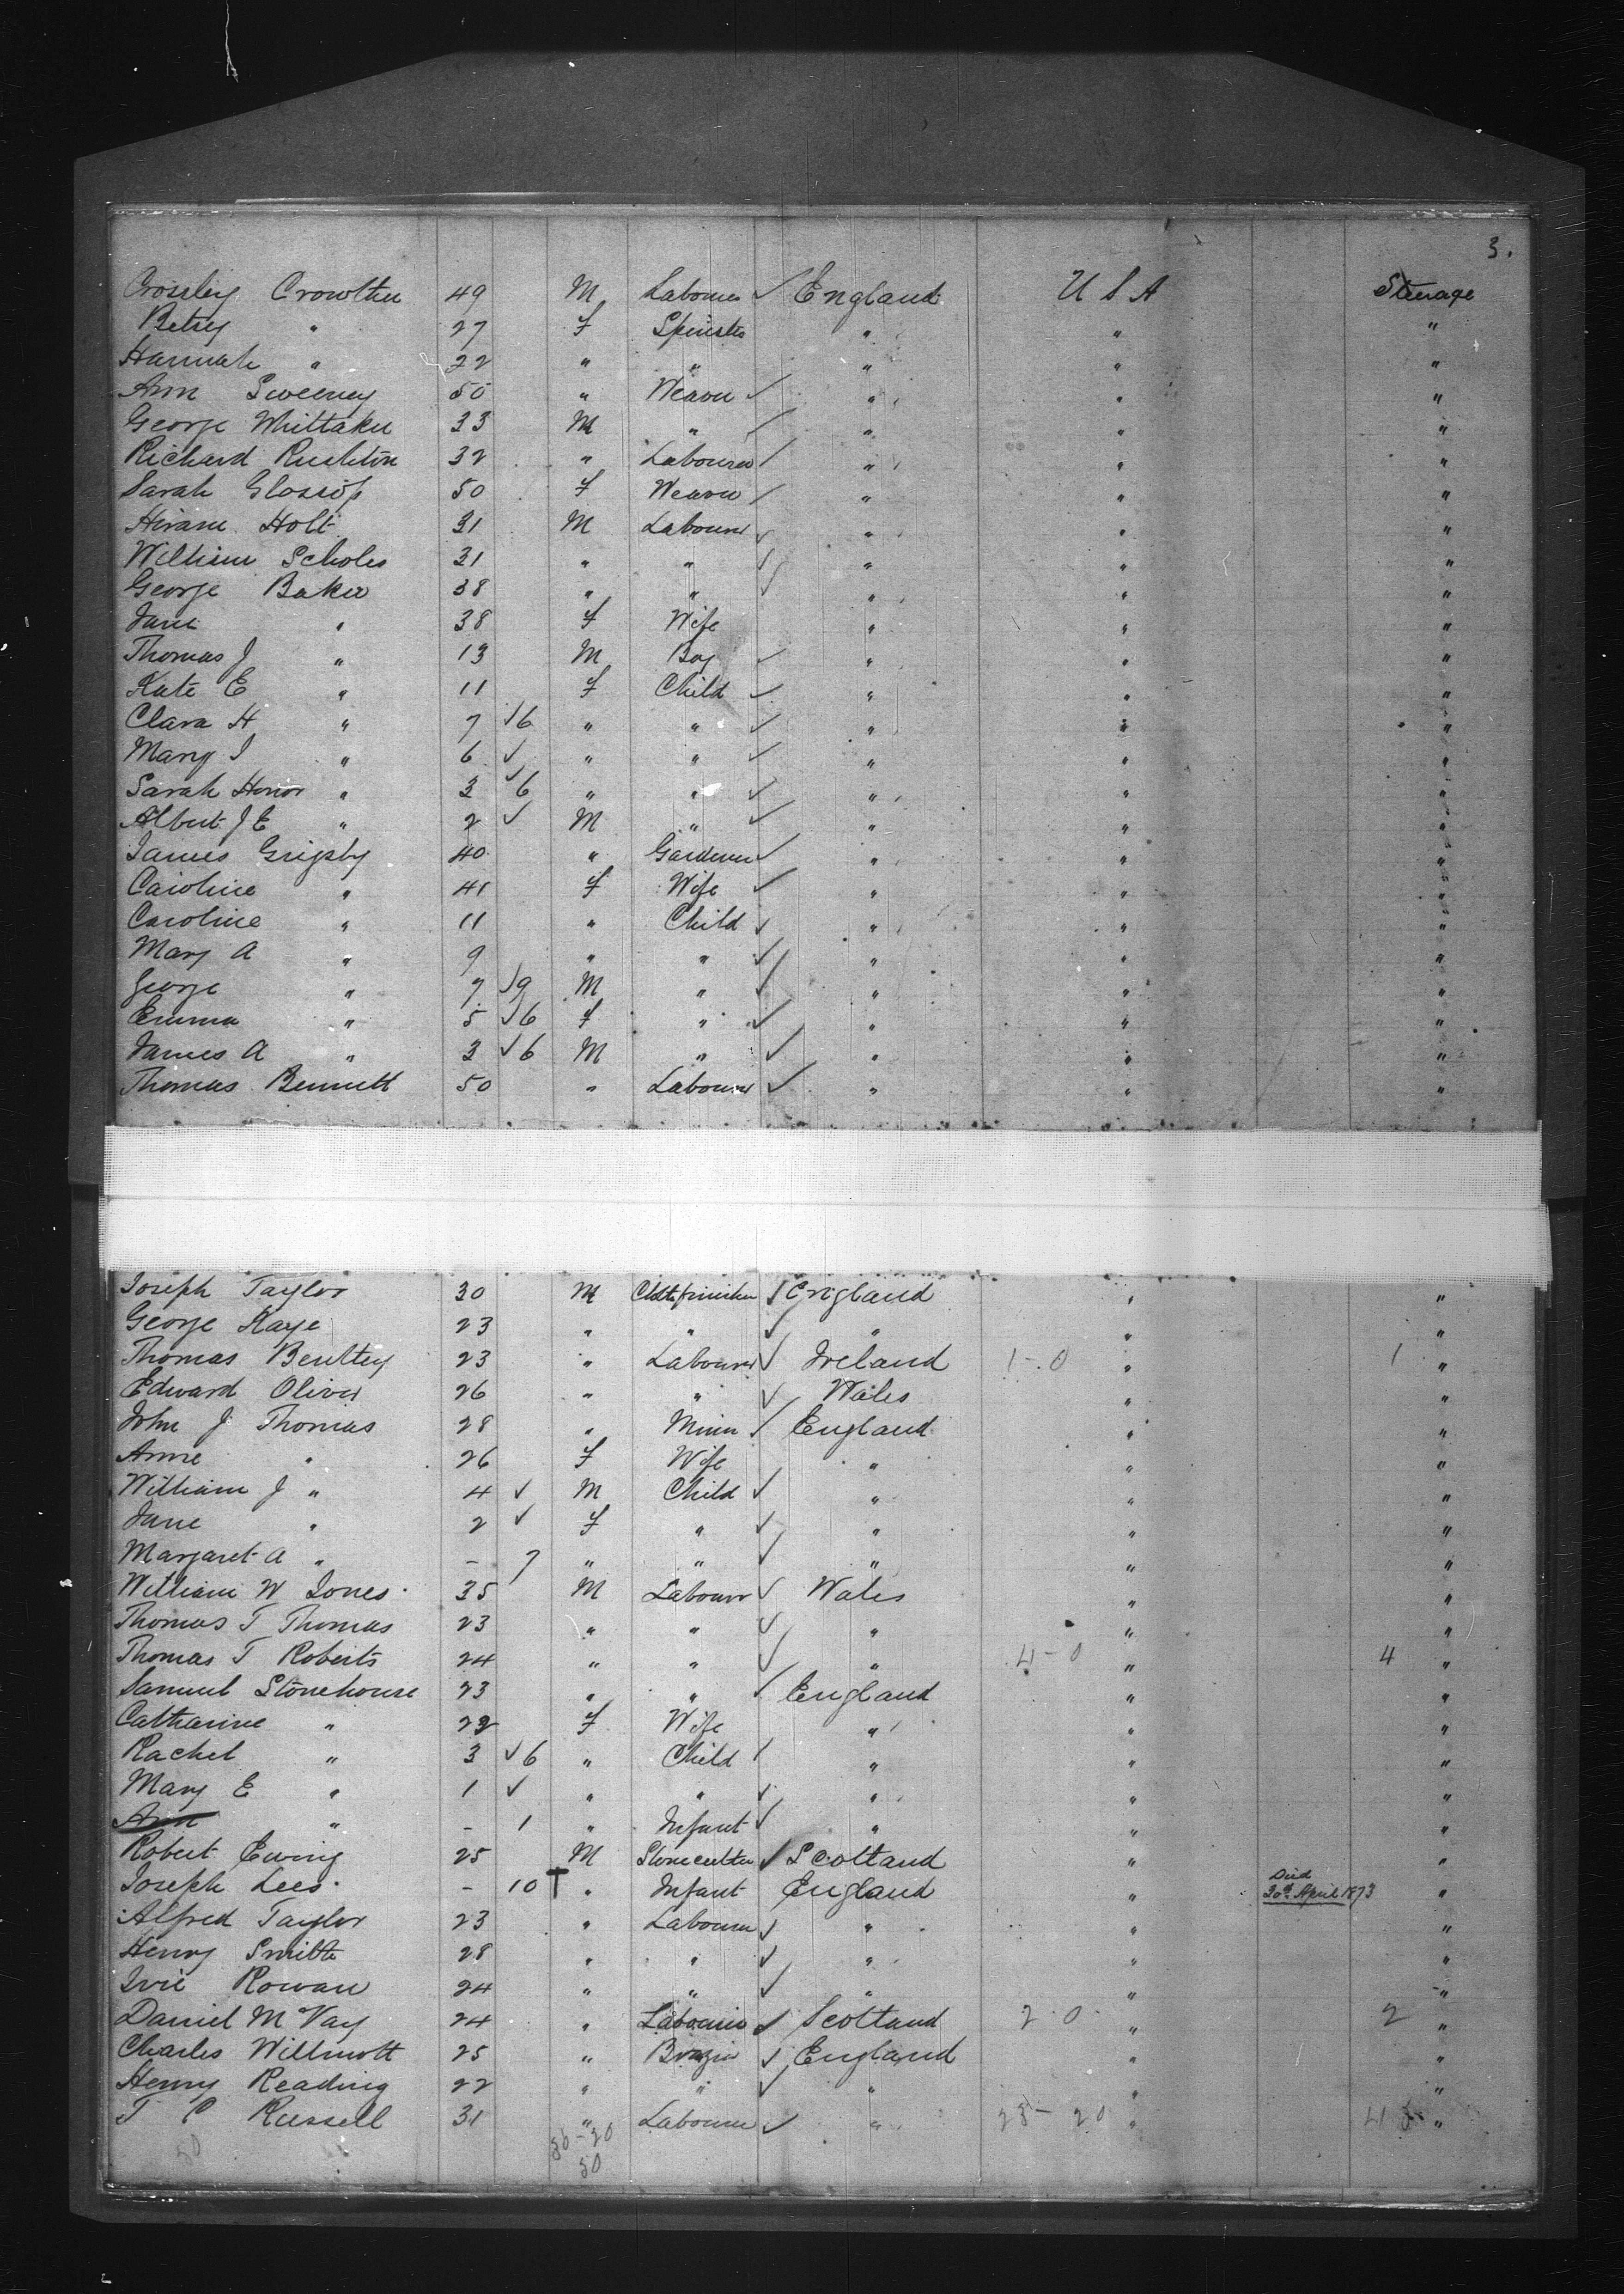 3.
Crossley Crowther 49 M Labourer ✓ England U S A Steerage
Betsy " 27 F Spinster " " "
Hannah " 22 " " " " "
Ann Sweeney 50 " Weaver ✓ " " "
George Whittaker 33 M " ✓ " " "
Richard Rushton 32 " Labourer ✓ " " "
Sarah Glossop 50 F Weaver ✓ " " "
Hiram Holt 31 M Labourer ✓ " " "
William Scholes 31 " " ✓ " " "
George Baker 38 " " ✓ " " "
Jane " 38 F Wife " " "
Thomas J " 13 M Boy ✓ " " "
Kate E " 11 F Child ✓ " " "
Clara H " 7 ✓ 6 " " ✓ " " "
Mary I " 6 ✓ " " ✓ " " "
Sarah Honor " 3 ✓ 6 " " ✓ " " "
Albert J E " 2 ✓ M " ✓ " " "
James Grigsby 40 " Gardener ✓ " " "
Caroline " 41 F Wife ✓ " " "
Caroline " 11 " Child ✓ " " "
Mary A " 9 " " ✓ " " "
George " 7 ✓ 9 M " ✓ " " "
Emma " 5 ✓ 6 F " ✓ " " "
James A " 3 ✓ 6 M " ✓ " " "
Thomas Bennett 50 " Labourer ✓ " " "
Joseph Taylor 30 M Cloth finisher ✓ England " "
George Kaye 23 " " ✓ " " "
Thomas Bentley 23 " Labourer ✓ Ireland 1-0 " 1 "
Edward Oliver 26 " " ✓ Wales " "
John J Thomas 28 " Miner ✓ England " "
Anne " 26 F Wife " " "
William J " 4 ✓ M Child ✓ " " "
Jane " 2 ✓ F " ✓ " " "
Margaret A " - 7 " " ✓ " " "
William W Jones 35 M Labourer ✓ Wales " "
Thomas T Thomas 23 " " ✓ " " "
Thomas T Roberts 24 " " ✓ " 4-0 " 4 "
Samuel Stonehouse 23 " " ✓ England " "
Catharine " 22 F Wife " " "
Rachel " 3 ✓ 6 " Child ✓ " " "
Mary E " 1 ✓ " " ✓ " " "
Ann " - 1 " Infant ✓ " " "
Robert Ewing 25 M Stonecutter ✓ Scotland " "
Joseph Lees - 10 † " Infant England " Died 30th April 1873 "
Alfred Taylor 23 " Labourer ✓ " " "
Henry Smith 28 " " ✓ " " "
Ivie Rowan 24 " " ✓ " " "
Daniel McVay 24 " Labourer ✓ Scotland 2-0 " 2 "
Charles Willmott 25 " ✓ England " "
Henry Reading 22 " " ✓ " " "
T P Russell 31 " Labourer ✓ " 28-20 " "
50 30-20
50